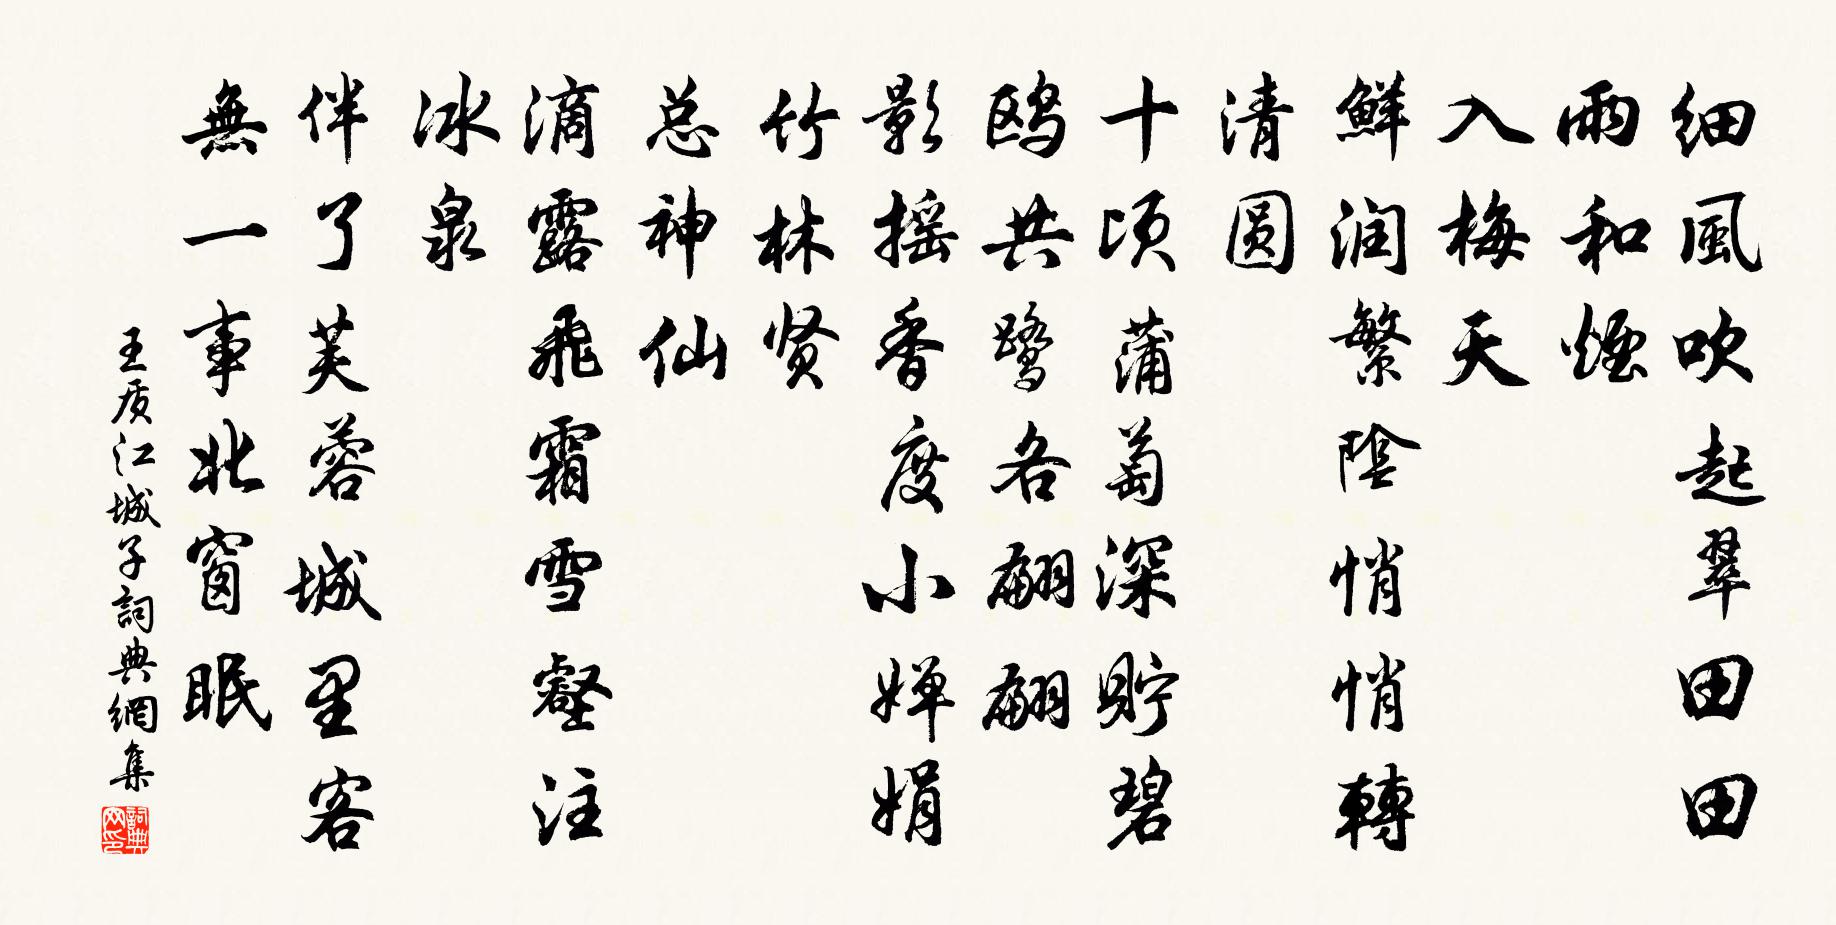 细風吹起翠田田
雨和煙
入梅天
鲜润繁陰悄悄轉
清圆
十顷蒲萄深貯碧
鸥共鹭各翩翩
影摇香度小婵娟
竹林贤
总神仙
滴露飛霜雪壑注
冰泉
伴了芙蓉城里客
無一事北窗眠
王质江城子詞典網集
詞典网印